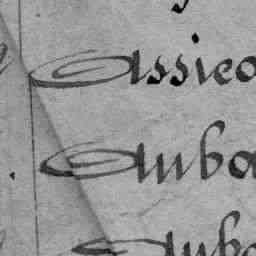 Assico
Auba
Auba